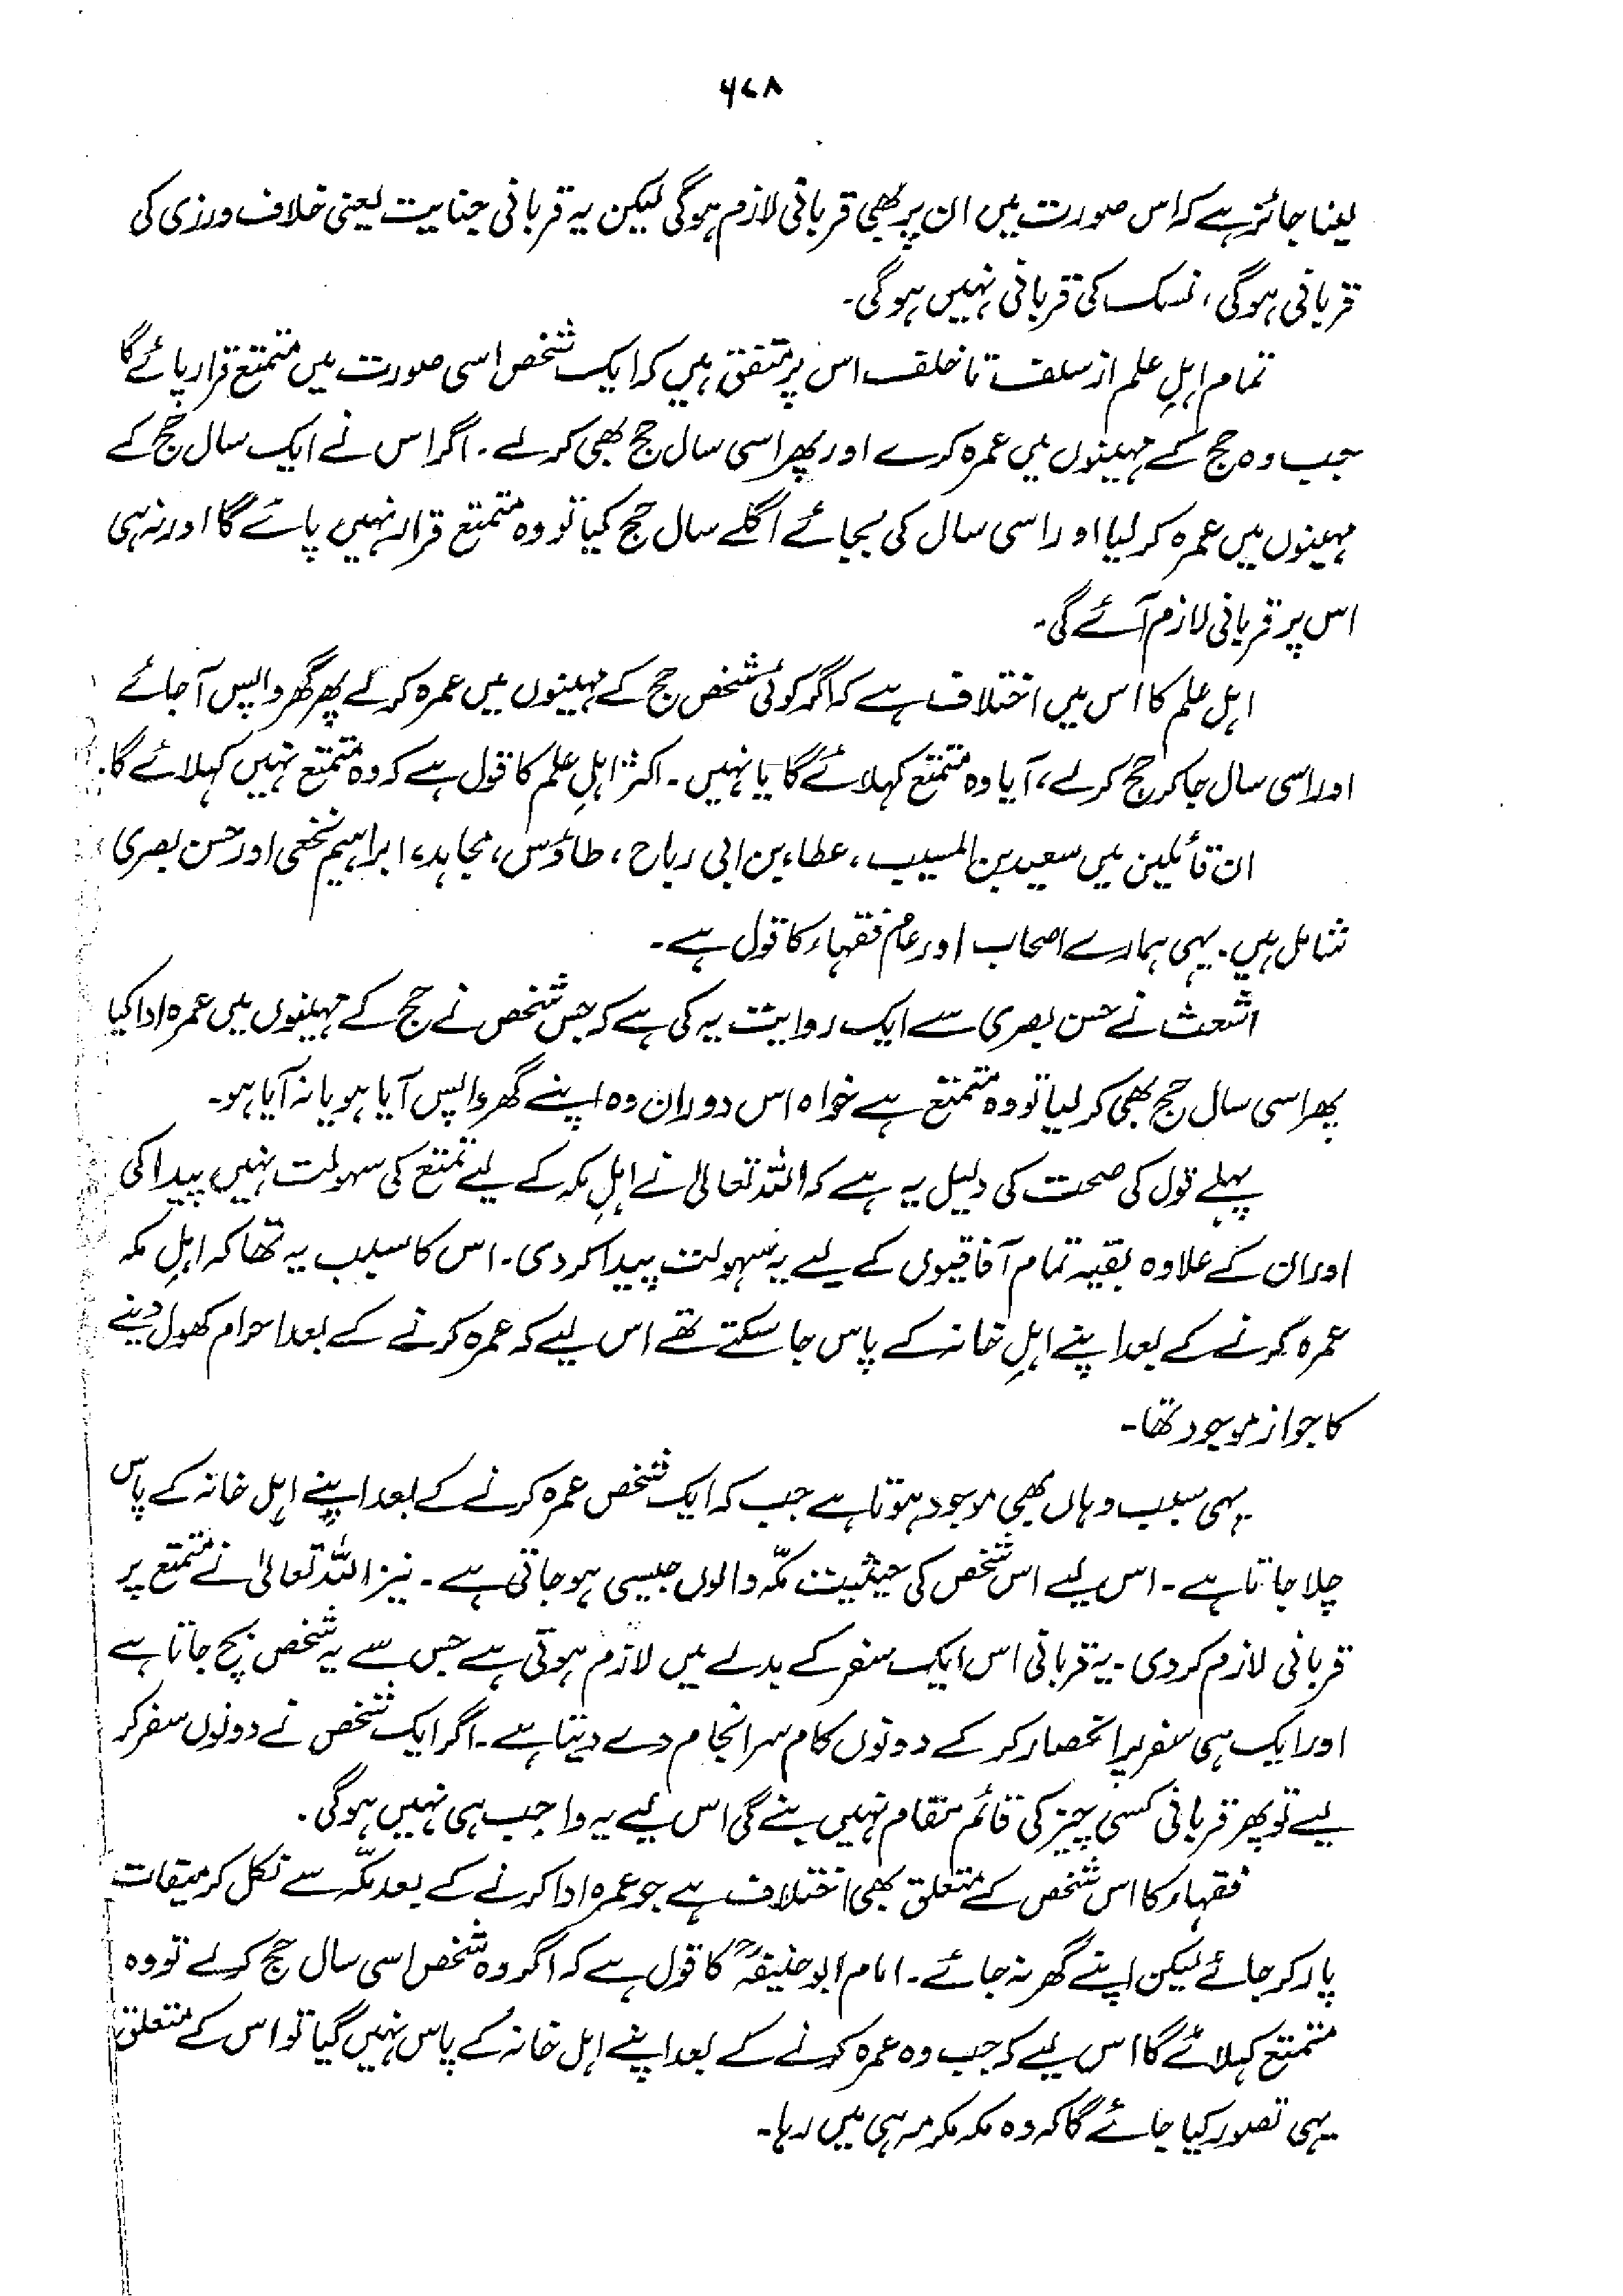 ۶۷۸
لینا جائز ہے کہ اس صورت میں ان پر بھی قربانی لازم ہوگی لیکن یہ قربانی جنایت یعنی خلاف ورزی کی
قربانی ہوگی، نسک کی قربانی نہیں ہوگی۔
تمام اہلِ علم از سلف تا خلف اس پر متفق ہیں کہ ایک شخص اسی صورت میں متمتع قرار پائے گا
جب وہ حج کے مہینوں میں عمرہ کرے اور پھر اسی سال حج بھی کرلے۔ اگر اس نے ایک سال حج کے
مہینوں میں عمرہ کر لیا اور اسی سال کی بجائے اگلے سال حج کیا تو وہ متمتع قرار نہیں پائے گا اور نہ ہی
اس پر قربانی لازم آئے گی۔
اہل علم کا اس میں اختلاف ہے کہ اگر کوئی شخص حج کے مہینوں میں عمرہ کرلے پھر گھر واپس آجائے
اور اسی سال جاکر حج کرلے، آیا وہ متمتع کہلائے گا یا نہیں۔ اکثر اہلِ علم کا قول ہے کہ وہ متمتع نہیں کہلائے گا۔
ان قائلین میں سعید بن المسیب، عطاء بن ابی رباح، طاؤس، مجاہد، ابراہیم نخعی اور حسن بصری
شامل ہیں۔ یہی ہمارے اصحاب اور عام فقہاء کا قول ہے۔
اشعث نے حسن بصری سے ایک روایت یہ کی ہے کہ جس شخص نے حج کے مہینوں میں عمرہ ادا کیا
پھر اسی سال حج بھی کر لیا تو وہ متمتع ہے خواہ اس دوران وہ اپنے گھر واپس آیا ہو یا نہ آیا ہو۔
پہلے قول کی صحت کی دلیل یہ ہے کہ اللہ تعالیٰ نے اہلِ مکہ کے لیے تمتع کی سہولت نہیں پیدا کی
اور ان کے علاوہ بقیہ تمام آفاقیوں کے لیے یہ سہولت پیدا کر دی۔ اس کا سبب یہ تھا کہ اہلِ مکہ
عمرہ کرنے کے بعد اپنے اہلِ خانہ کے پاس جا سکتے تھے اس لیے کہ عمرہ کرنے کے بعد احرام کھول دینے
کا جواز موجود تھا۔
یہی سبب وہاں بھی موجود ہوتا ہے جب کہ ایک شخص عمرہ کرنے کے بعد اپنے اہل خانہ کے پاس
چلا جاتا ہے۔ اس لیے اس شخص کی حیثیت مکّہ والوں جیسی ہو جاتی ہے۔ نیز اللہ تعالیٰ نے متمتع پر
قربانی لازم کردی۔ یہ قربانی اس ایک سفر کے بدلے میں لازم ہوتی ہے جس سے یہ شخص بچ جاتا ہے
اور ایک ہی سفر پر انحصار کر کے دونوں کام سرانجام دے دیتا ہے۔ اگر ایک شخص نے دونوں سفر کر
لیے تو پھر قربانی کسی چیز کی قائم مقام نہیں بنے گی اس لیے یہ واجب ہی نہیں ہوگی۔
فقہاء کا اس شخص کے متعلق بھی اختلاف ہے جو عمرہ ادا کرنے کے بعد مکّہ سے نکل کر میقات
پار کر جائے لیکن اپنے گھر نہ جائے۔ امام ابو حنیفہؒ کا قول ہے کہ اگر وہ شخص اسی سال حج کرلے تو وہ
متمتع کہلائے گا اس لیے کہ جب وہ عمرہ کرنے کے بعد اپنے اہل خانہ کے پاس نہیں گیا تو اس کے متعلق
یہی تصور کیا جائے گا کہ وہ مکہ مکرمہ ہی میں رہا۔